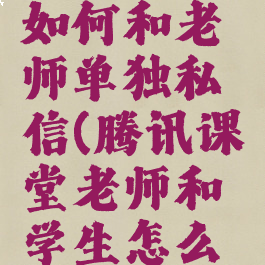 如何和老
师单独私
信(腾讯课
堂老师和
学生怎么